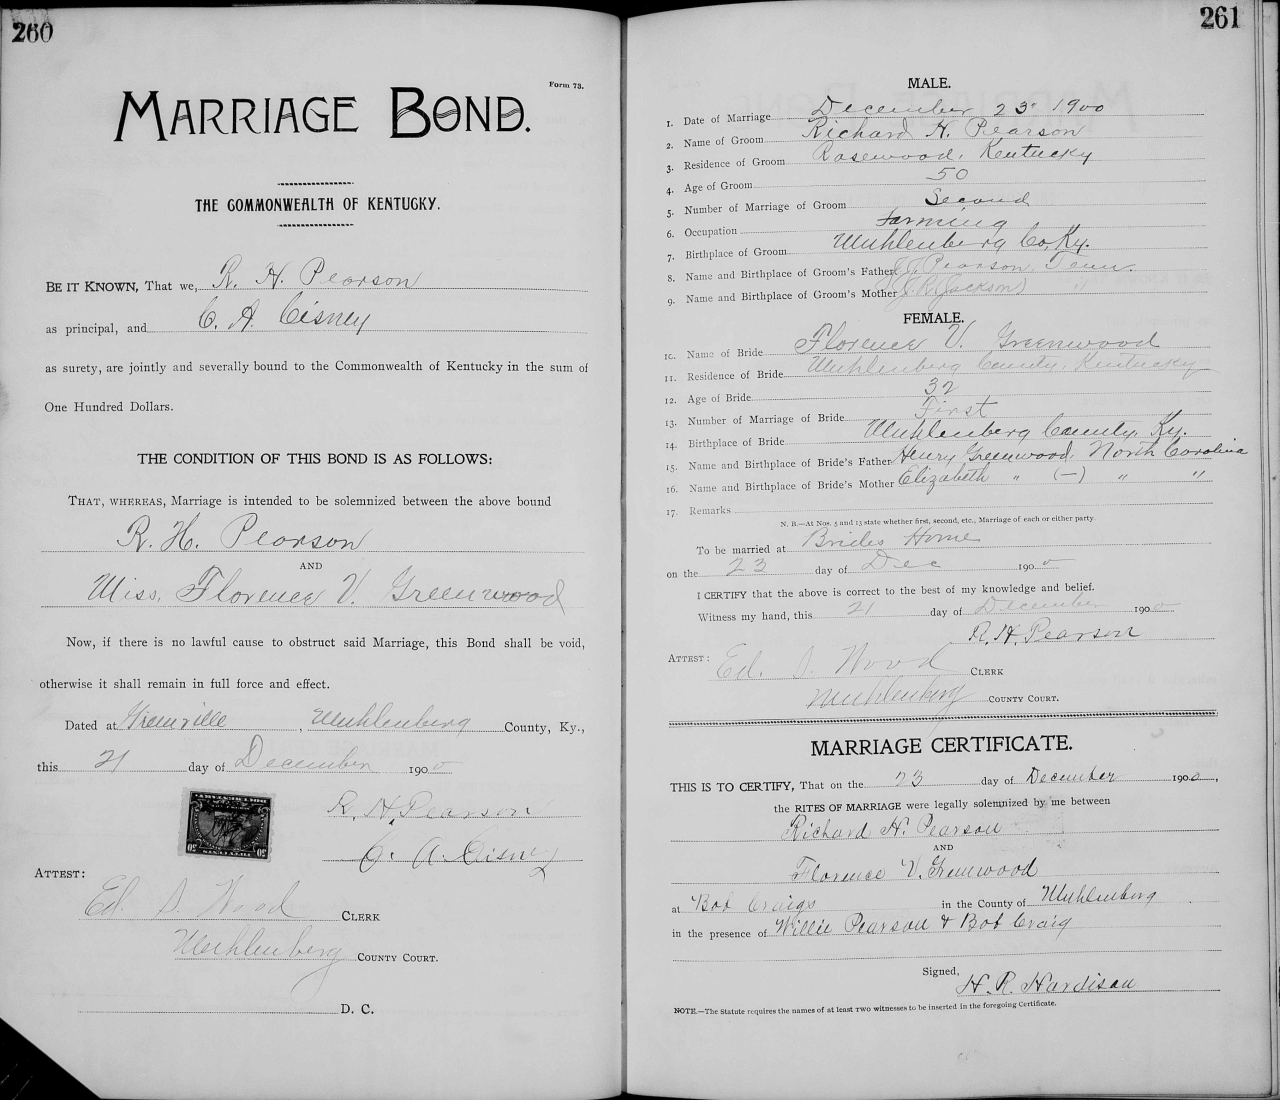 260
Form 73.
MARRIAGE BOND.
THE COMMONWEALTH OF KENTUCKY.
BE IT KNOWN, That we, R. H. Pearson
as principal, and C. A. Cisney
as surety, are jointly and severally bound to the Commonwealth of Kentucky in the sum of
One Hundred Dollars.
THE CONDITION OF THIS BOND IS AS FOLLOWS:
THAT, WHEREAS, Marriage is intended to be solemnized between the above bound
R. H. Pearson
AND
Miss. Florence V. Greenwood
Now, if there is no lawful cause to obstruct said Marriage, this Bond shall be void,
otherwise it shall remain in full force and effect.
Dated at Greenville, Muhlenberg County, Ky.,
this 21 day of December 1900
R. H. Pearson
C. A. Cisney
ATTEST:
Ed. S. Wood CLERK
Muhlenberg COUNTY COURT.
D. C.
261
MALE.
1. Date of Marriage December 23" 1900
2. Name of Groom Richard H. Pearson
3. Residence of Groom Rosewood, Kentucky
4. Age of Groom 50
5. Number of Marriage of Groom Second
6. Occupation Farming
7. Birthplace of Groom Muhlenberg Co, Ky.
8. Name and Birthplace of Groom's Father J. J. Pearson, Tenn.
9. Name and Birthplace of Groom's Mother (Jackson) "
FEMALE.
10. Name of Bride Florence V. Greenwood
11. Residence of Bride Muhlenberg County, Kentucky
12. Age of Bride 32
13. Number of Marriage of Bride First
14. Birthplace of Bride Muhlenberg County, Ky.
15. Name and Birthplace of Bride's Father Henry Greenwood, North Carolina
16. Name and Birthplace of Bride's Mother Elizabeth " (—) " "
17. Remarks
N. B.—At Nos. 5 and 13 state whether first, second, etc., Marriage of each or either party
To be married at Brides Home
on the 23 day of Dec 1900
I CERTIFY that the above is correct to the best of my knowledge and belief.
Witness my hand, this 21 day of December 1900
R. H. Pearson
ATTEST:
Ed. S. Wood CLERK
Muhlenberg COUNTY COURT.
MARRIAGE CERTIFICATE.
THIS IS TO CERTIFY, That on the 23 day of December 1900,
the RITES OF MARRIAGE were legally solemnized by me between
Richard H. Pearson
AND
Florence V. Greenwood
at Bob Craigs in the County of Muhlenberg
in the presence of Willie Pearson & Bob Craig
Signed,
H. R. Hardison
NOTE.—The Statute requires the names of at least TWO witnesses to be inserted in the foregoing Certificate.